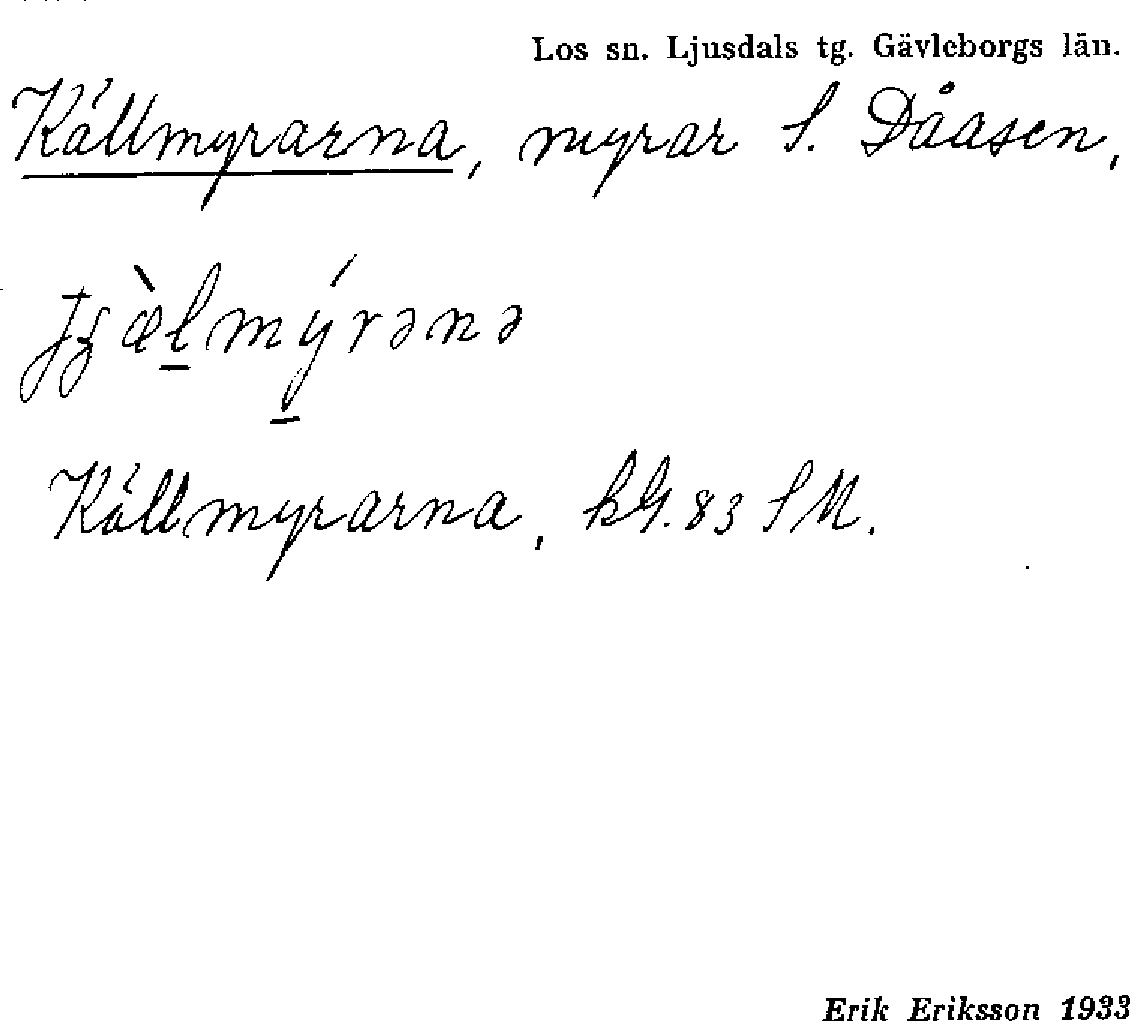 Los sn. Ljusdals tg. Gävleborgs län.
Källmyrarna, myrar S. Dåasen,
Källmyrarna, kG. 83 SM.
Erik Eriksson 1933